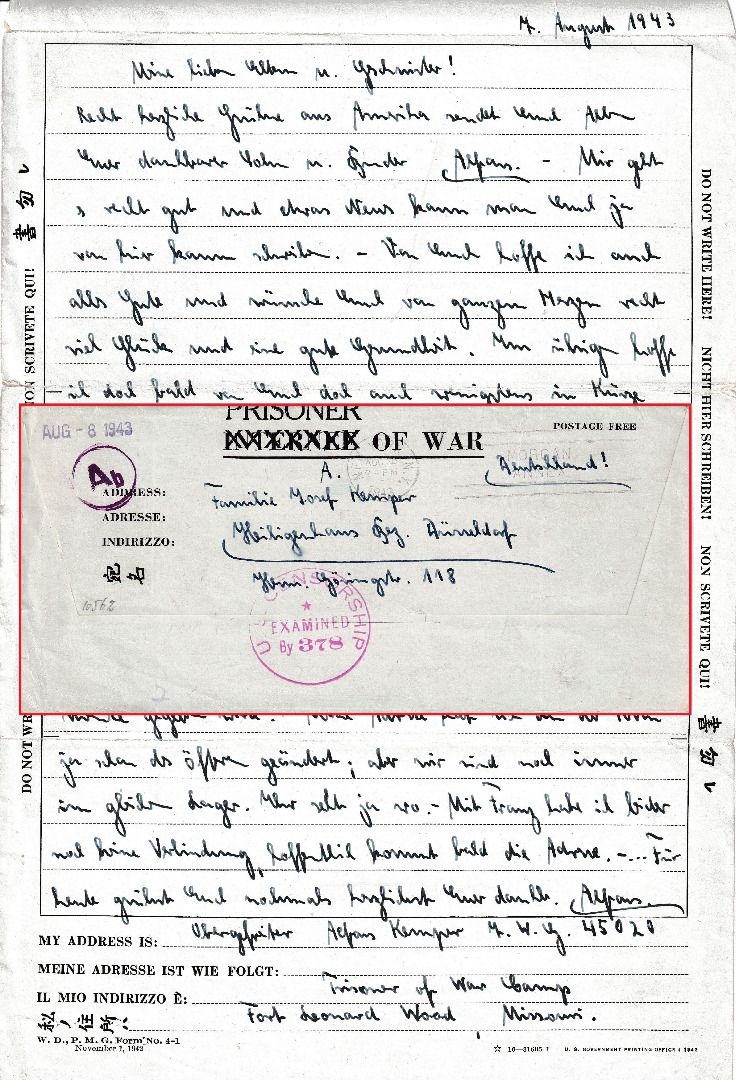 7. August 1943
Meine lieben Eltern u. Geschwister!
Recht herzliche Grüße aus Amerika sendet Euch Allen
Euer dankbarer Sohn u. Bruder Alfons. – Mir geht
s recht gut und etwas Neues kann man Euch ja
von hier kaum schreiben. – Von Euch hoffe ich auch
alles Gute und wünsche Euch von ganzem Herzen recht
viel Glück und eine gute Gesundheit. Im übrigen hoffe
ich doch bald von Euch doch auch wenigstens in Kürze
DO NOT WRITE HERE! NICHT HIER SCHREIBEN! NON SCRIVETE QUI! 書勿レ
ON SCRIVETE QUI! 書勿レ
DO NOT WR
AUG - 8 1943
PRISONER
OF WAR
POSTAGE FREE
Ab
A.
Deutschland!
ADDRESS:
Familie Josef Kemper
ADRESSE:
INDIRIZZO:
Heiligenhaus Bez. Düsseldorf
宛名
Herm. Göringstr. 118
10562
CENSORSHIP
EXAMINED
By 378
U
2
ja schon des öfteren geändert; aber wir sind noch immer
im gleichen Lager. Ihr seht ja wo. – Mit Franz habe ich leider
noch keine Verbindung, hoffentlich kommt bald die Adresse. –... Für
heute grüßt Euch nochmals herzlichst Euer dankb. Alfons.
MY ADDRESS IS: Obergefreiter Alfons Kemper 7. W. G. 45020
MEINE ADRESSE IST WIE FOLGT:
Prisoner of War Camp
IL MIO INDIRIZZO È:
Fort Leonard Wood Missouri.
私ノ住所ハ
W. D., P. M. G. Form No. 4-1
November 1, 1942
☆ 16—31605-1 U. S. GOVERNMENT PRINTING OFFICE: 1942